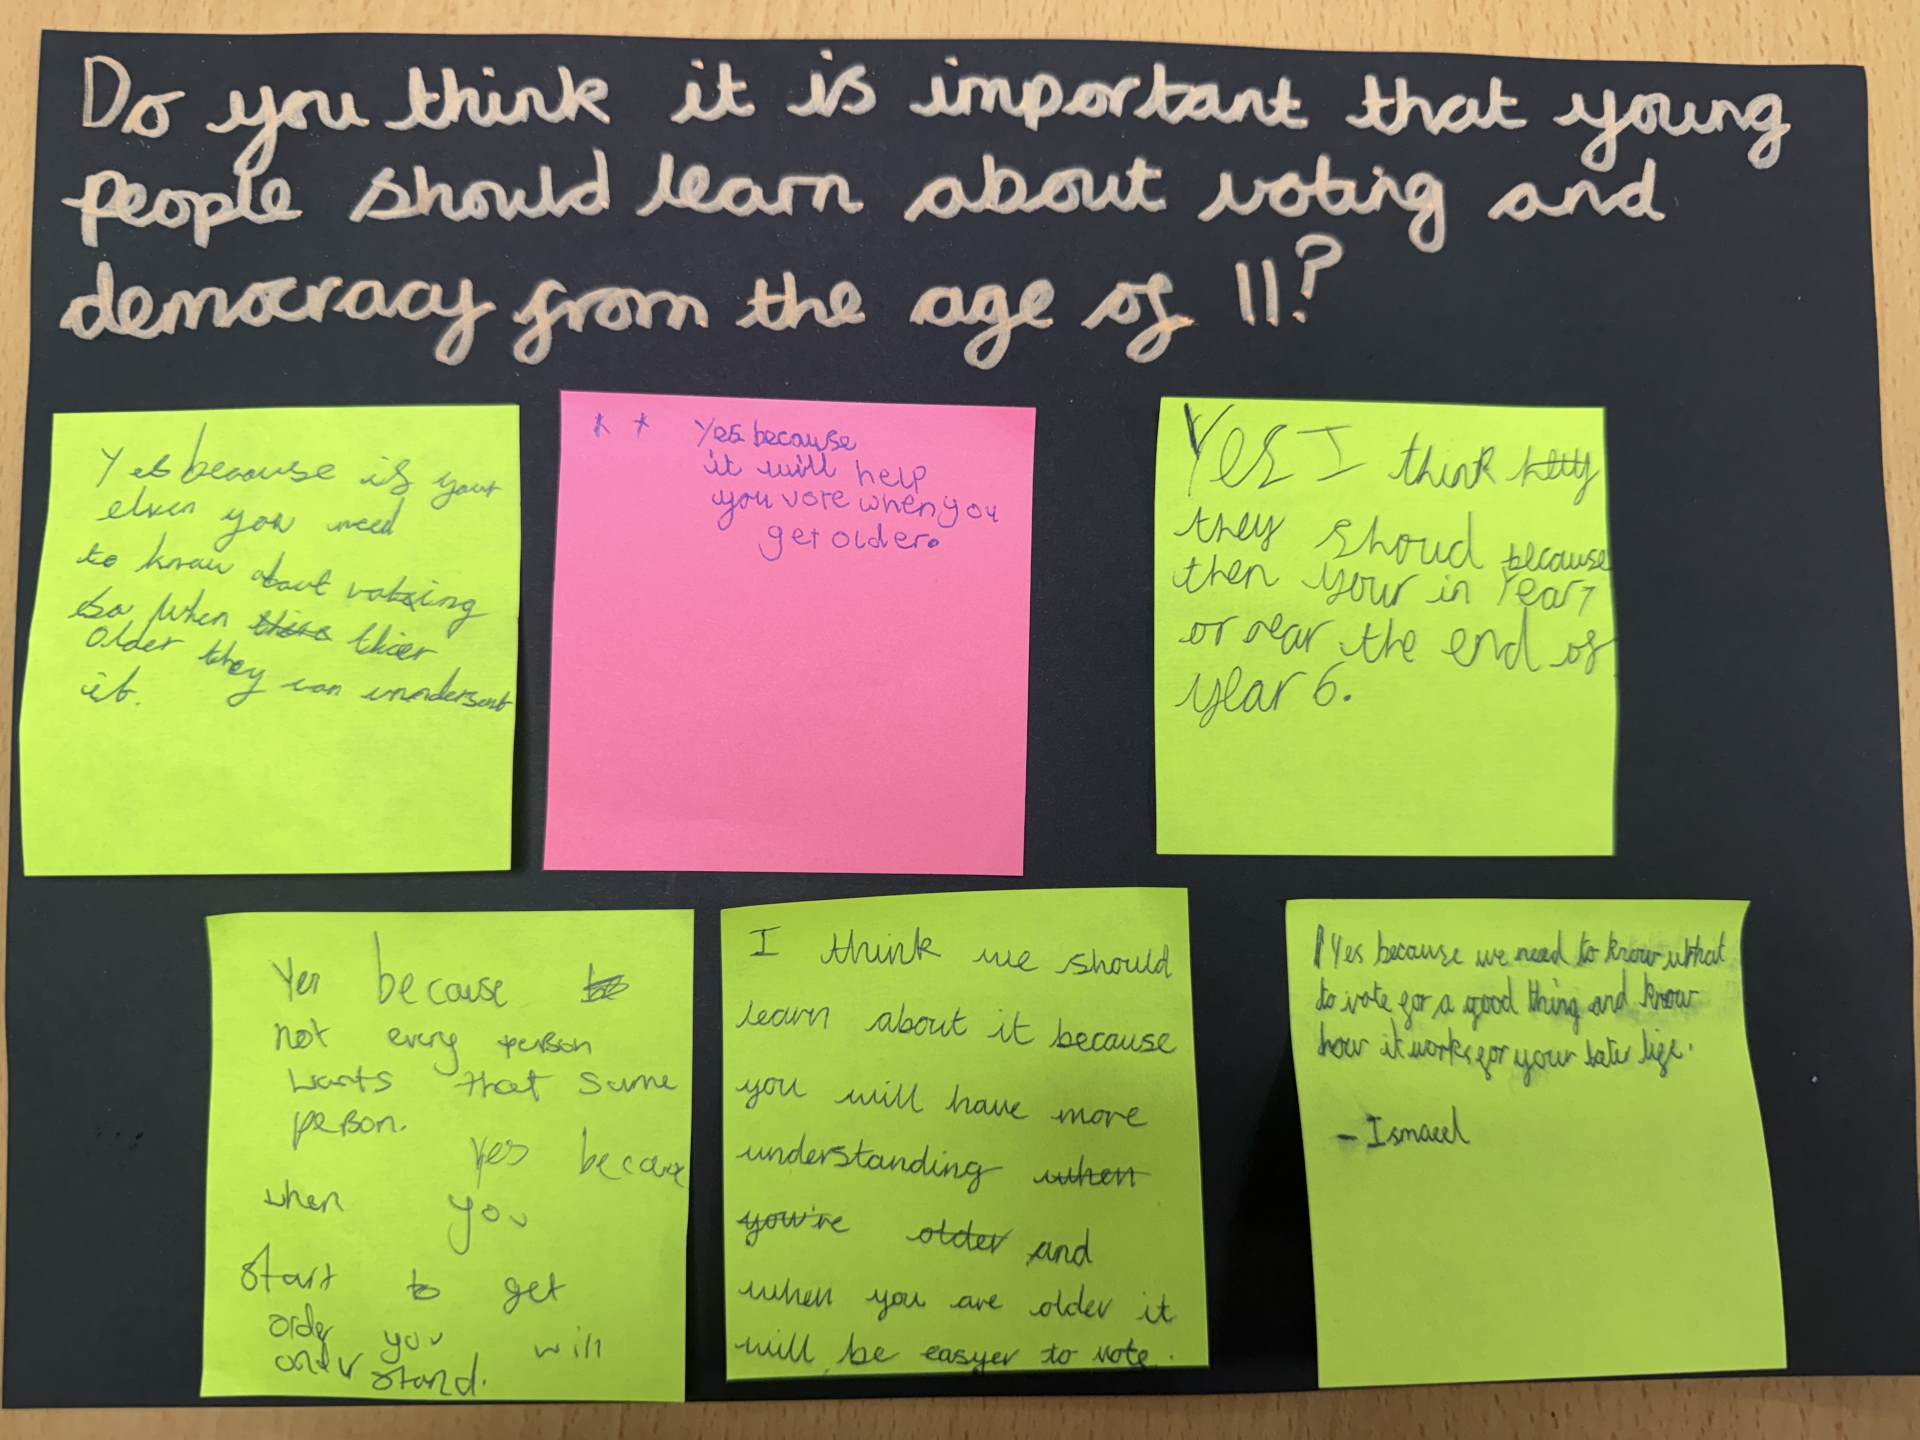 Do you think it is important that young
people should learn about voting and
democracy from the age of 11?
Yes because if your
elven you need
to know about voteing
so when
older they can
it.
Yes because
it will help
you vote when you
get older.
Yes I think
they shoud because
then your in Year 7
or near the end of
year 6.
Yes because
not every person
wants that same
person.
Yes because
when you
start to get
older you will
understand.
I think we should
learn about it because
you will have more
understanding when
you're older and
when you are older it
will be easyer to vote.
Yes because we need to know what
to vote for a good thing and know
how it works for your later life.
- Ismaeel